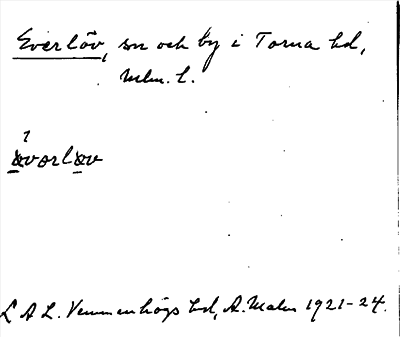 Everlöv, sn och by i Torna hd,
Mlm. l.
ävorläv
L A L. Vemmenhögs hd, A. Malm 1921-24.